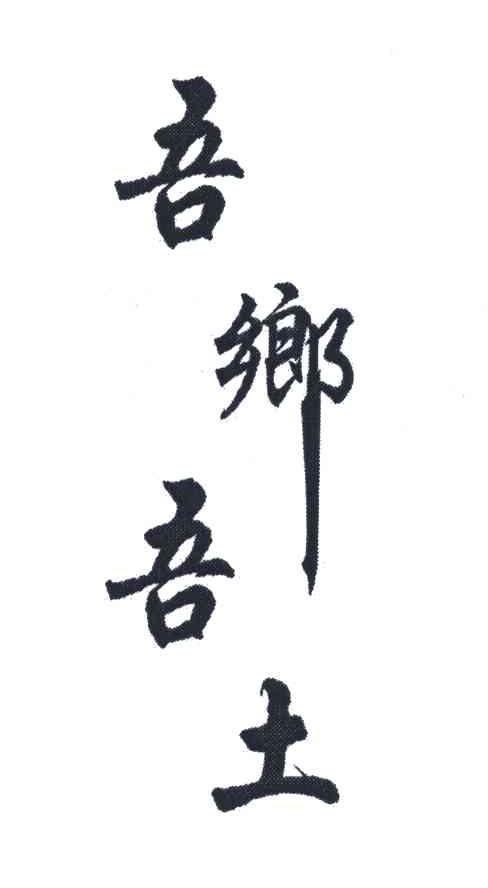 吾鄉吾土